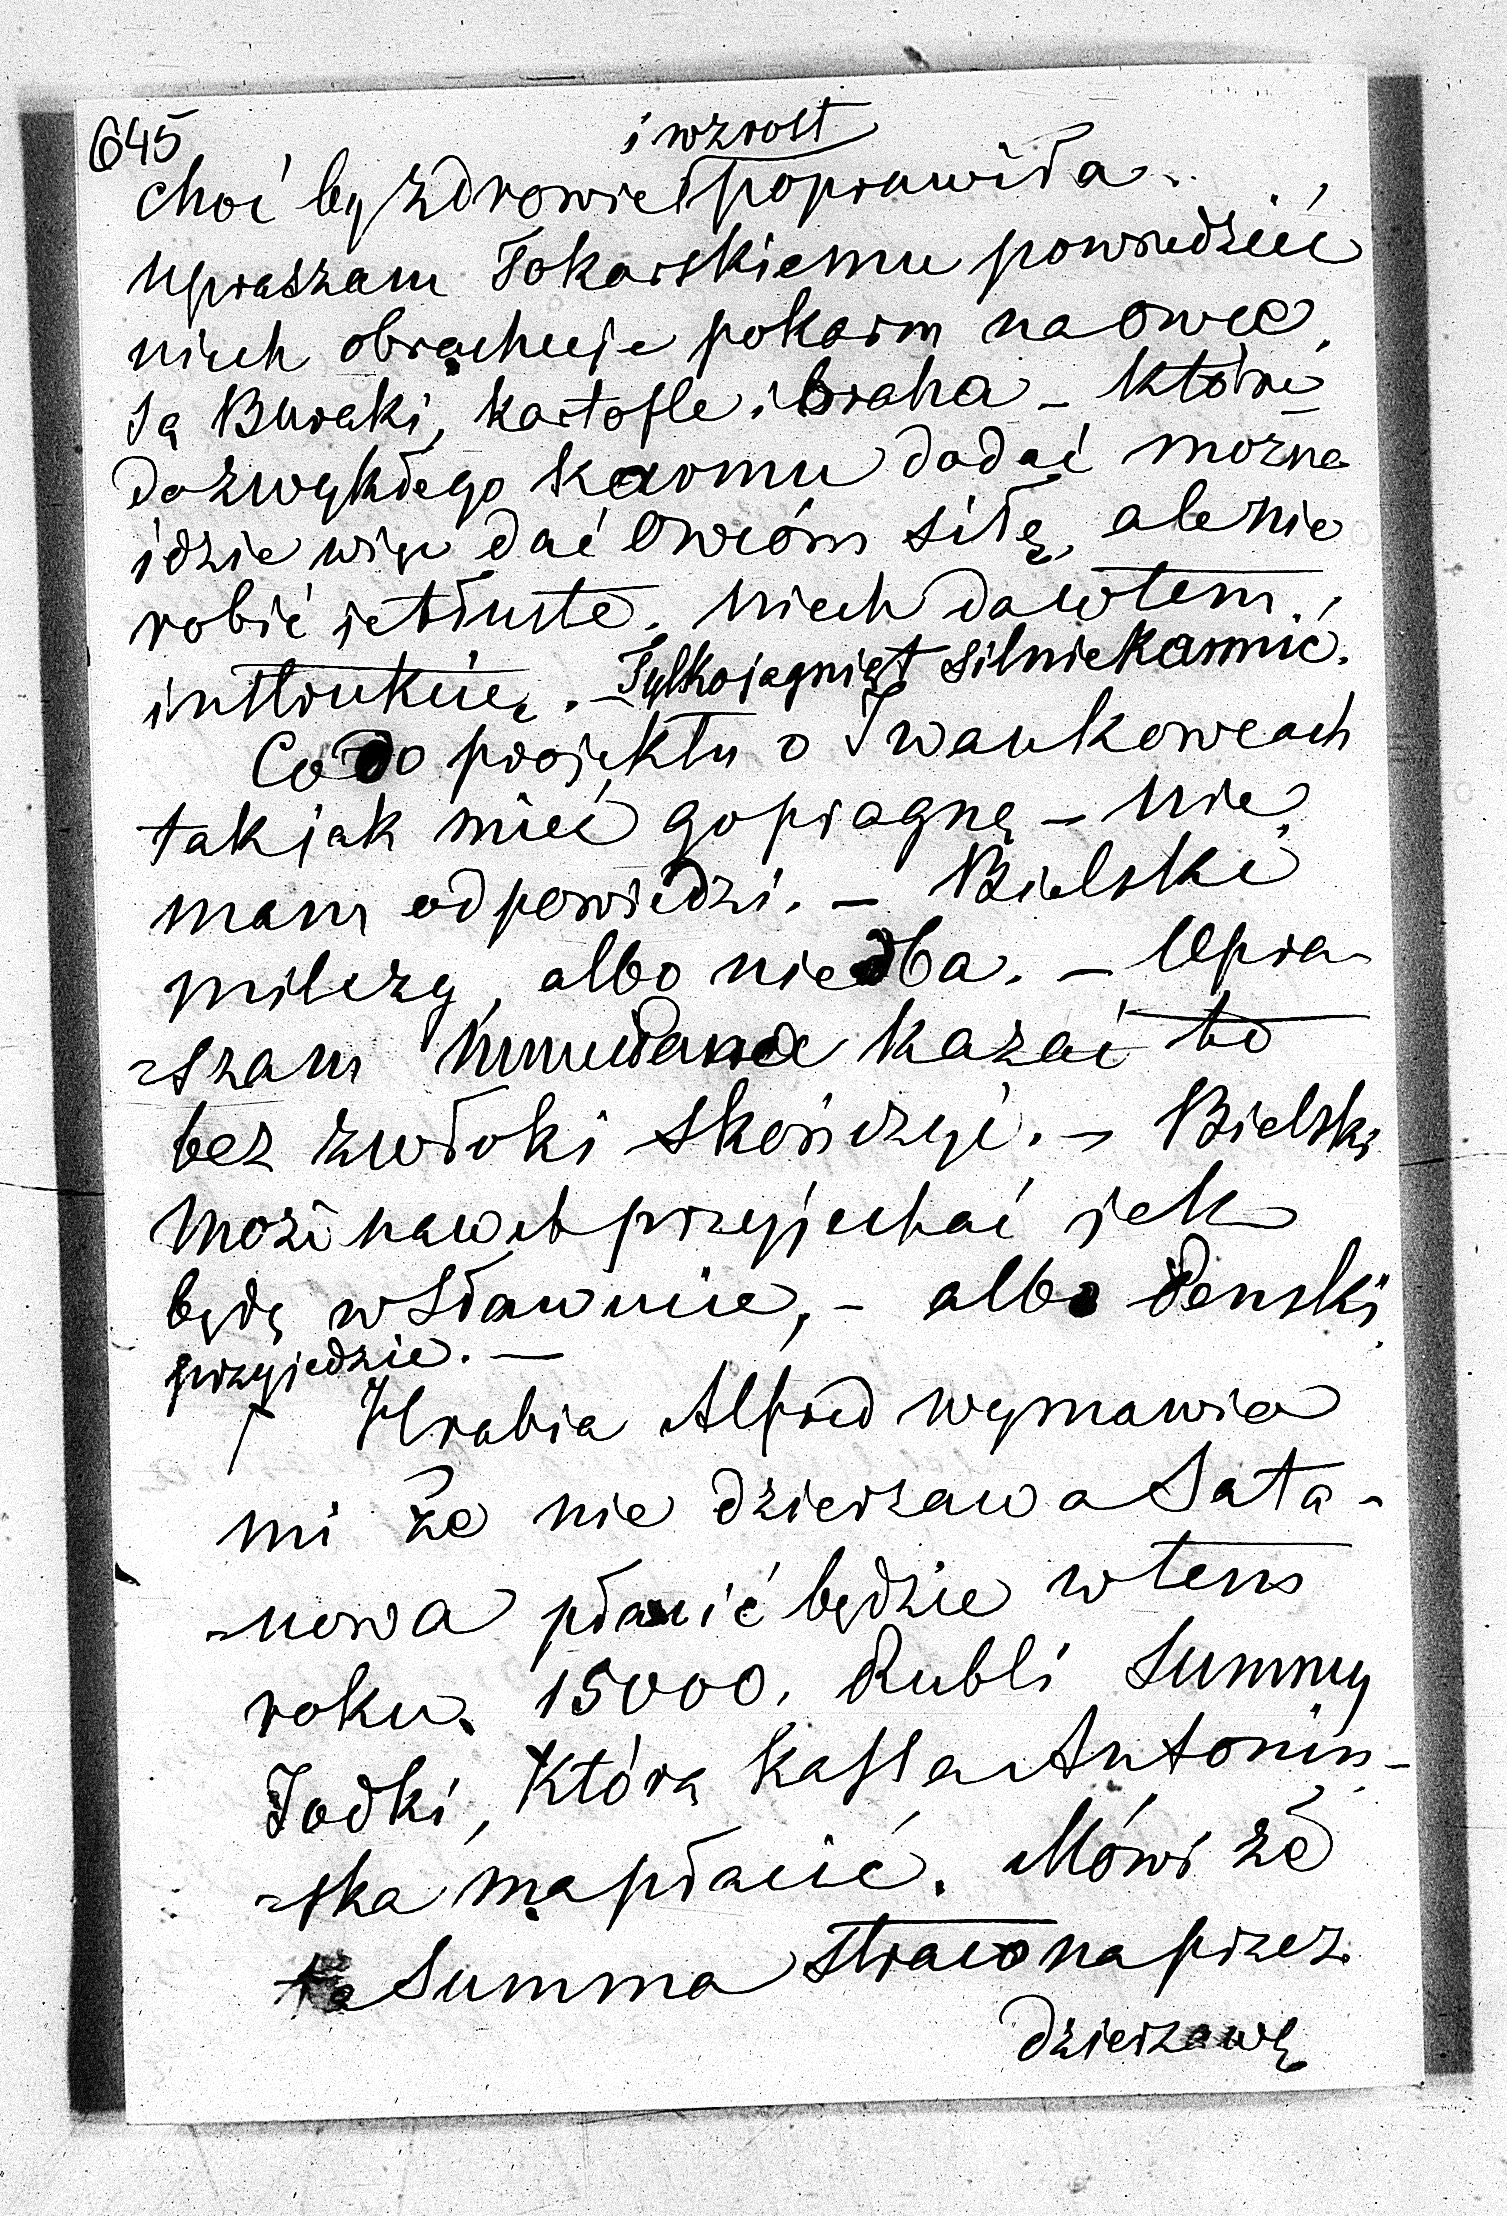 645
i wzrost
choć by zdrowie poprawiła.
upraszam Tokarskiemu powiedzieć
niech obrachuje pokarm na owce,
są Buraki, kartofle i braha – które
do zwykłego karmu dodać można
idzie więc dać Owcóm siłę, ale nie
robić je tłuste. niech da w tem
instrukcię. – Tylko jagnięt silnie karmić.
Co do projektu o Iwankowcach
tak jak mieć go pragnę – nie
mam odpowiedzi. – Bielski
milczy, albo nie dba. – Upra-
-szam kazać to
bez zwłoki skończyć. – Bielski
może nawet przyjechać jak
będę w Sławucie, – albo Denski
przyjedzie. –
Hrabia Alfred wymawia
mi że nie dzierzawa Sata-
-nowa płacić będzie w tem
roku. 15000. Rubli Summy
Jodki, którą kassa Antonin-
-ska ma płacić. Mówi że
ta Summa stracona przez
dzierzawę